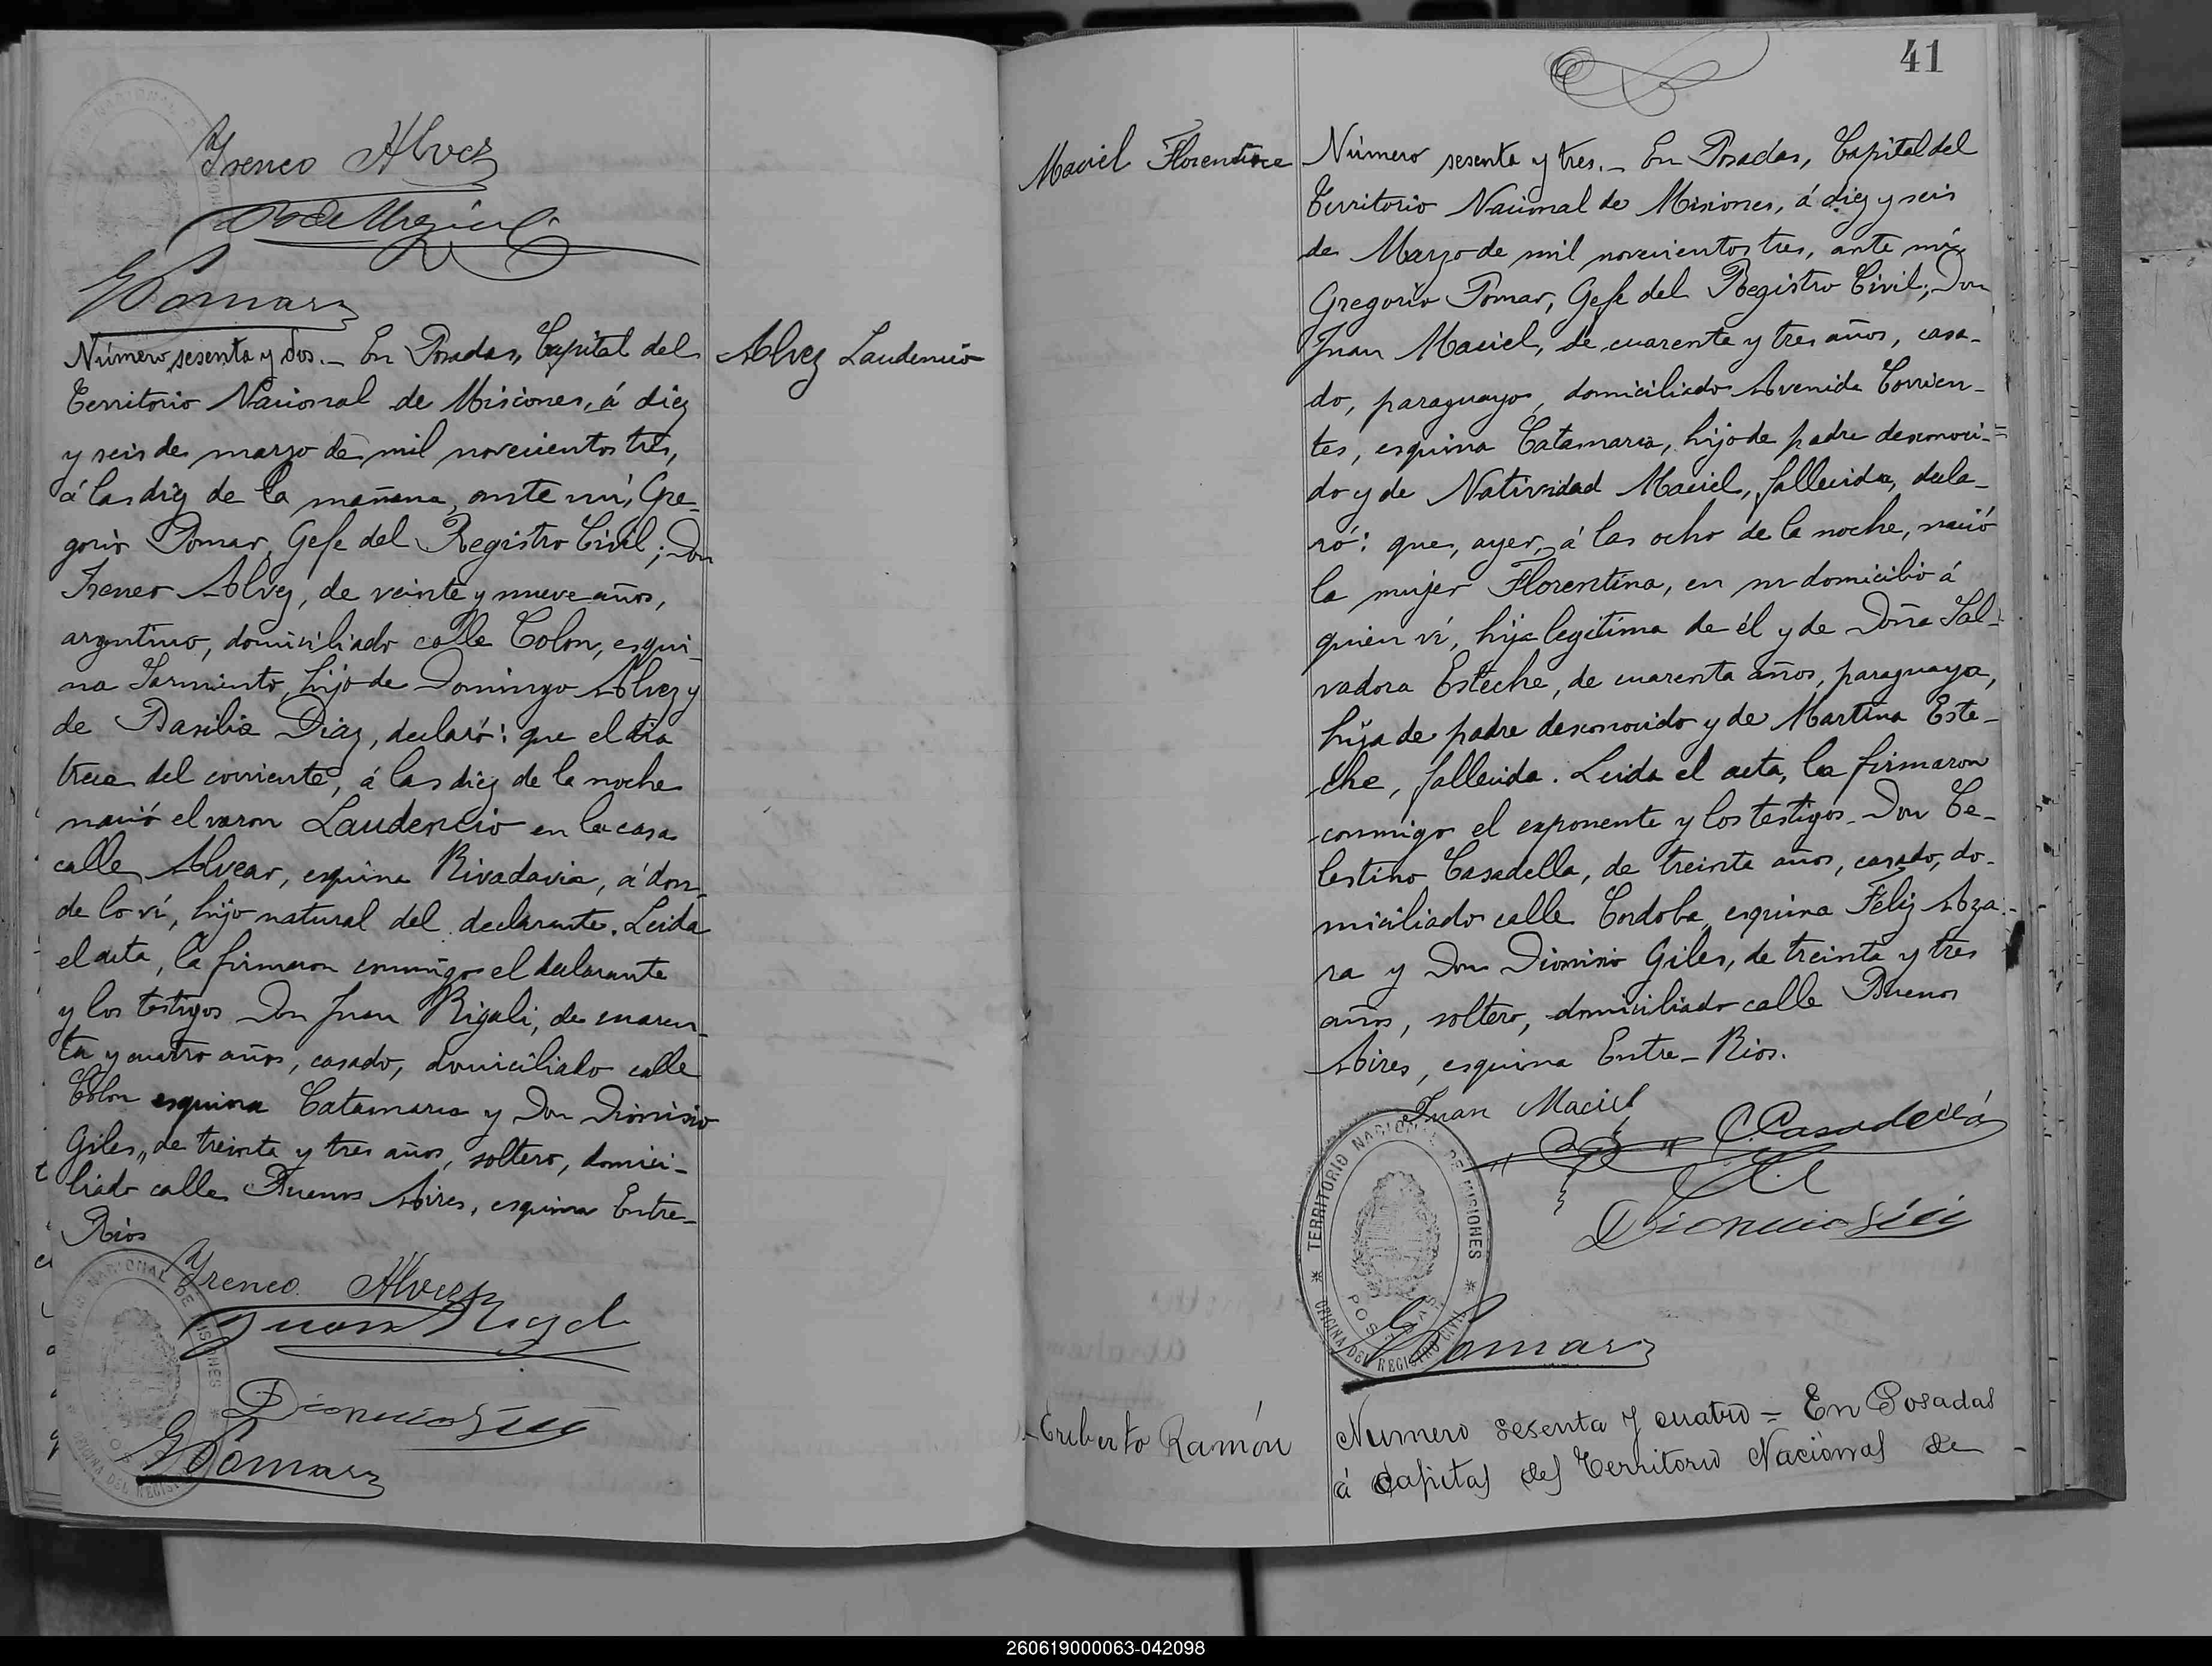 Yreneo Alvez
GPomar
Número sesenta y dos.- En Posadas, Capital del
Alvez Laudencio
Territorio Nacional de Misiones, á diez
y seis de marzo de mil novecientos tres,
á las diez de la mañana, ante mí, Gre-
gorio Pomar, Gefe del Registro Civil; Don
Ireneo Alvez, de veinte y nueve años,
argentino, domiciliado calle Colon, esqui-
na Sarmiento, hijo de Domingo Alvez y
de Basilia Diaz, declaró: que el dia
trece del corriente, á las diez de la noche
nació el varon Laudencio en la casa
calle Alvear, esquina Rivadavia, á don-
de lo ví, hijo natural del declarante. Leida
el acta, la firmaron conmigo el declarante
y los testigos Don Juan Rigali, de cuaren-
ta y cuatro años, casado, domiciliado calle
Colon esquina Catamarca y Don Dionisio
Giles, de treinta y tres años, soltero, domici-
liado calle Buenos Aires, esquina Entre-
Rios
Yreneo Alvez
Juan Rigali
Dionicio Giles
GPomar
TERRITORIO NACIONAL DE MISIONES
OFICINA DEL REGISTRO
41
Maciel Florentina
Número sesenta y tres.- En Posadas, Capital del
Territorio Nacional de Misiones, á diez y seis
de Marzo de mil novecientos tres, ante mí,
Gregorio Pomar, Gefe del Registro Civil; Don
Juan Maciel, de cuarenta y tres años, casa-
do, paraguayo, domiciliado Avenida Corrien-
tes, esquina Catamarca, hijo de padre desconoci-
do y de Natividad Maciel, fallecida, decla-
ró: que, ayer, á las ocho de la noche, nació
la mujer Florentina, en su domicilio á
quien ví, hija legítima de él y de Doña Sal-
vadora Esteche, de cuarenta años, paraguaya,
hija de padre desconocido y de Martina Este-
che, fallecida. Leida el acta, la firmaron
conmigo el exponente y los testigos Don Ce-
lestino Casadella, de treinta años, casado, do-
miciliado calle Cordoba esquina Feliz Aza-
ra y Don Dionisio Giles, de treinta y tres
años, soltero, domiciliado calle Buenos
Aires, esquina Entre-Rios.
Juan Maciel
C. Casadellá
Dionicio Giles
TERRITORIO NACIONAL DE MISIONES
POSADAS
OFICINA DEL REGISTRO CIVIL
GPomar
Eriberto Ramón
Numero sesenta y cuatro = En Posadas
á Capital del Territorio Nacional de
260619000063-042098